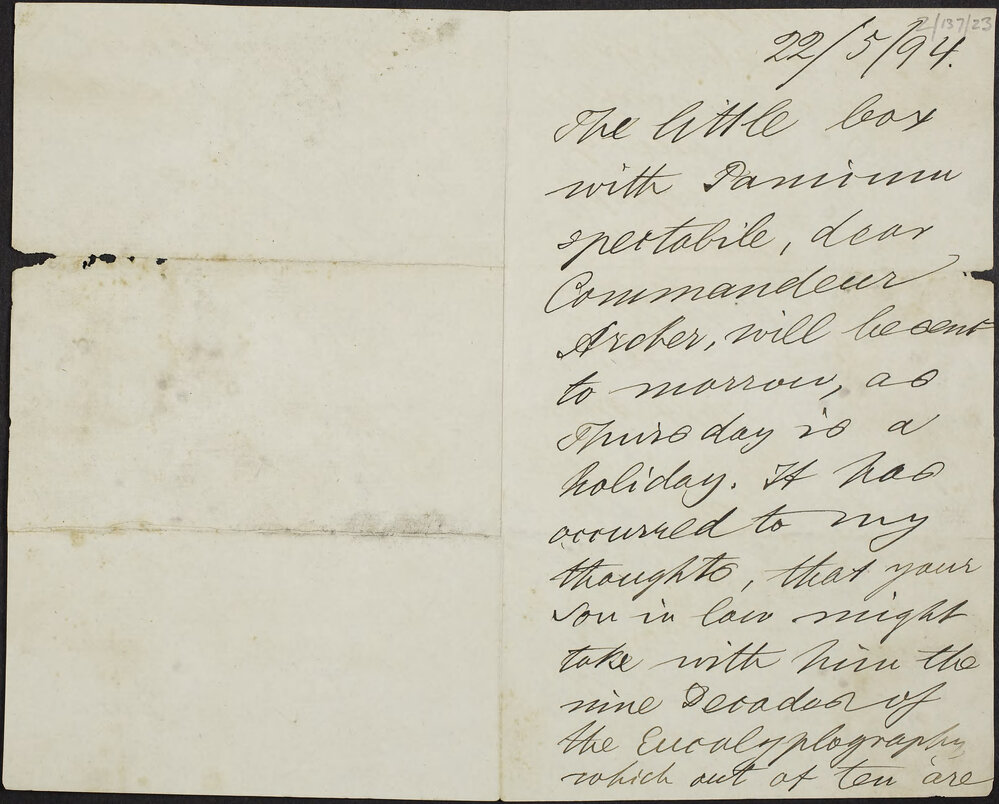 2/137/23
22/5/94.
The little box
with Panicum
spectabile, dear
Commandeur
Archer, will be sent
to morrow, as
Thursday is a
holiday. It has
occurred to my
thoughts, that your
son in law might
take with him the
nine Decades of
the Eucalyptography
which out of ten are